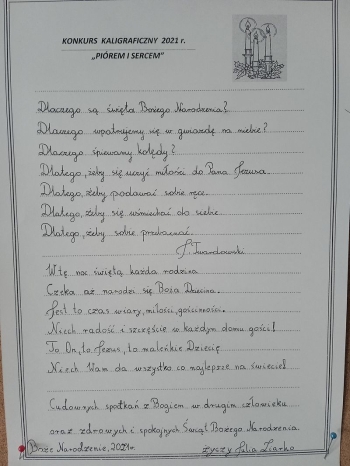 KONKURS KALIGRAFICZNY 2021 r.
„PIÓREM I SERCEM"
Dlaczego są święta Bożego Narodzenia?
Dlaczego wpatrujemy się w gwiazdę na niebie?
Dlaczego śpiewamy kolędy?
Dlatego, żeby się uczyć miłości do Pana Jezusa.
Dlatego, żeby podawać sobie ręce.
Dlatego, żeby się uśmiechać do siebie.
Dlatego, żeby sobie przebaczać.
J. Twardowski
W tę noc świętą każda rodzina
Czeka aż narodzi się Boża Dziecina.
Jest to czas wiary, miłości, gościnności.
Niech radość i szczęście w każdym domu gości!
To On, to Jezus, to maleńkie Dziecię
Niech Wam da wszystko co najlepsze na świecie!
Cudownych spotkań z Bogiem w drugim człowieku
oraz zdrowych i spokojnych Świąt Bożego Narodzenia
Boże Narodzenie, 2021r. życzy Lilia